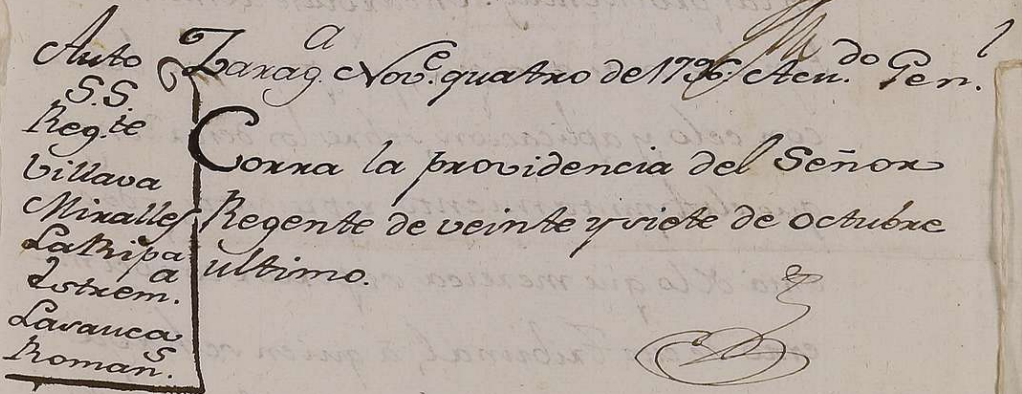 Auto
S.S.
Reg.te
Villava
Miralles
LaRipa
Estrem.a
Lasauca
Roman.s
Zarag.a Nov.e quatro de 1796. Acu.do Gen.l
Corra la providencia del Señor
Regente de veinte y siete de octubre
ultimo.